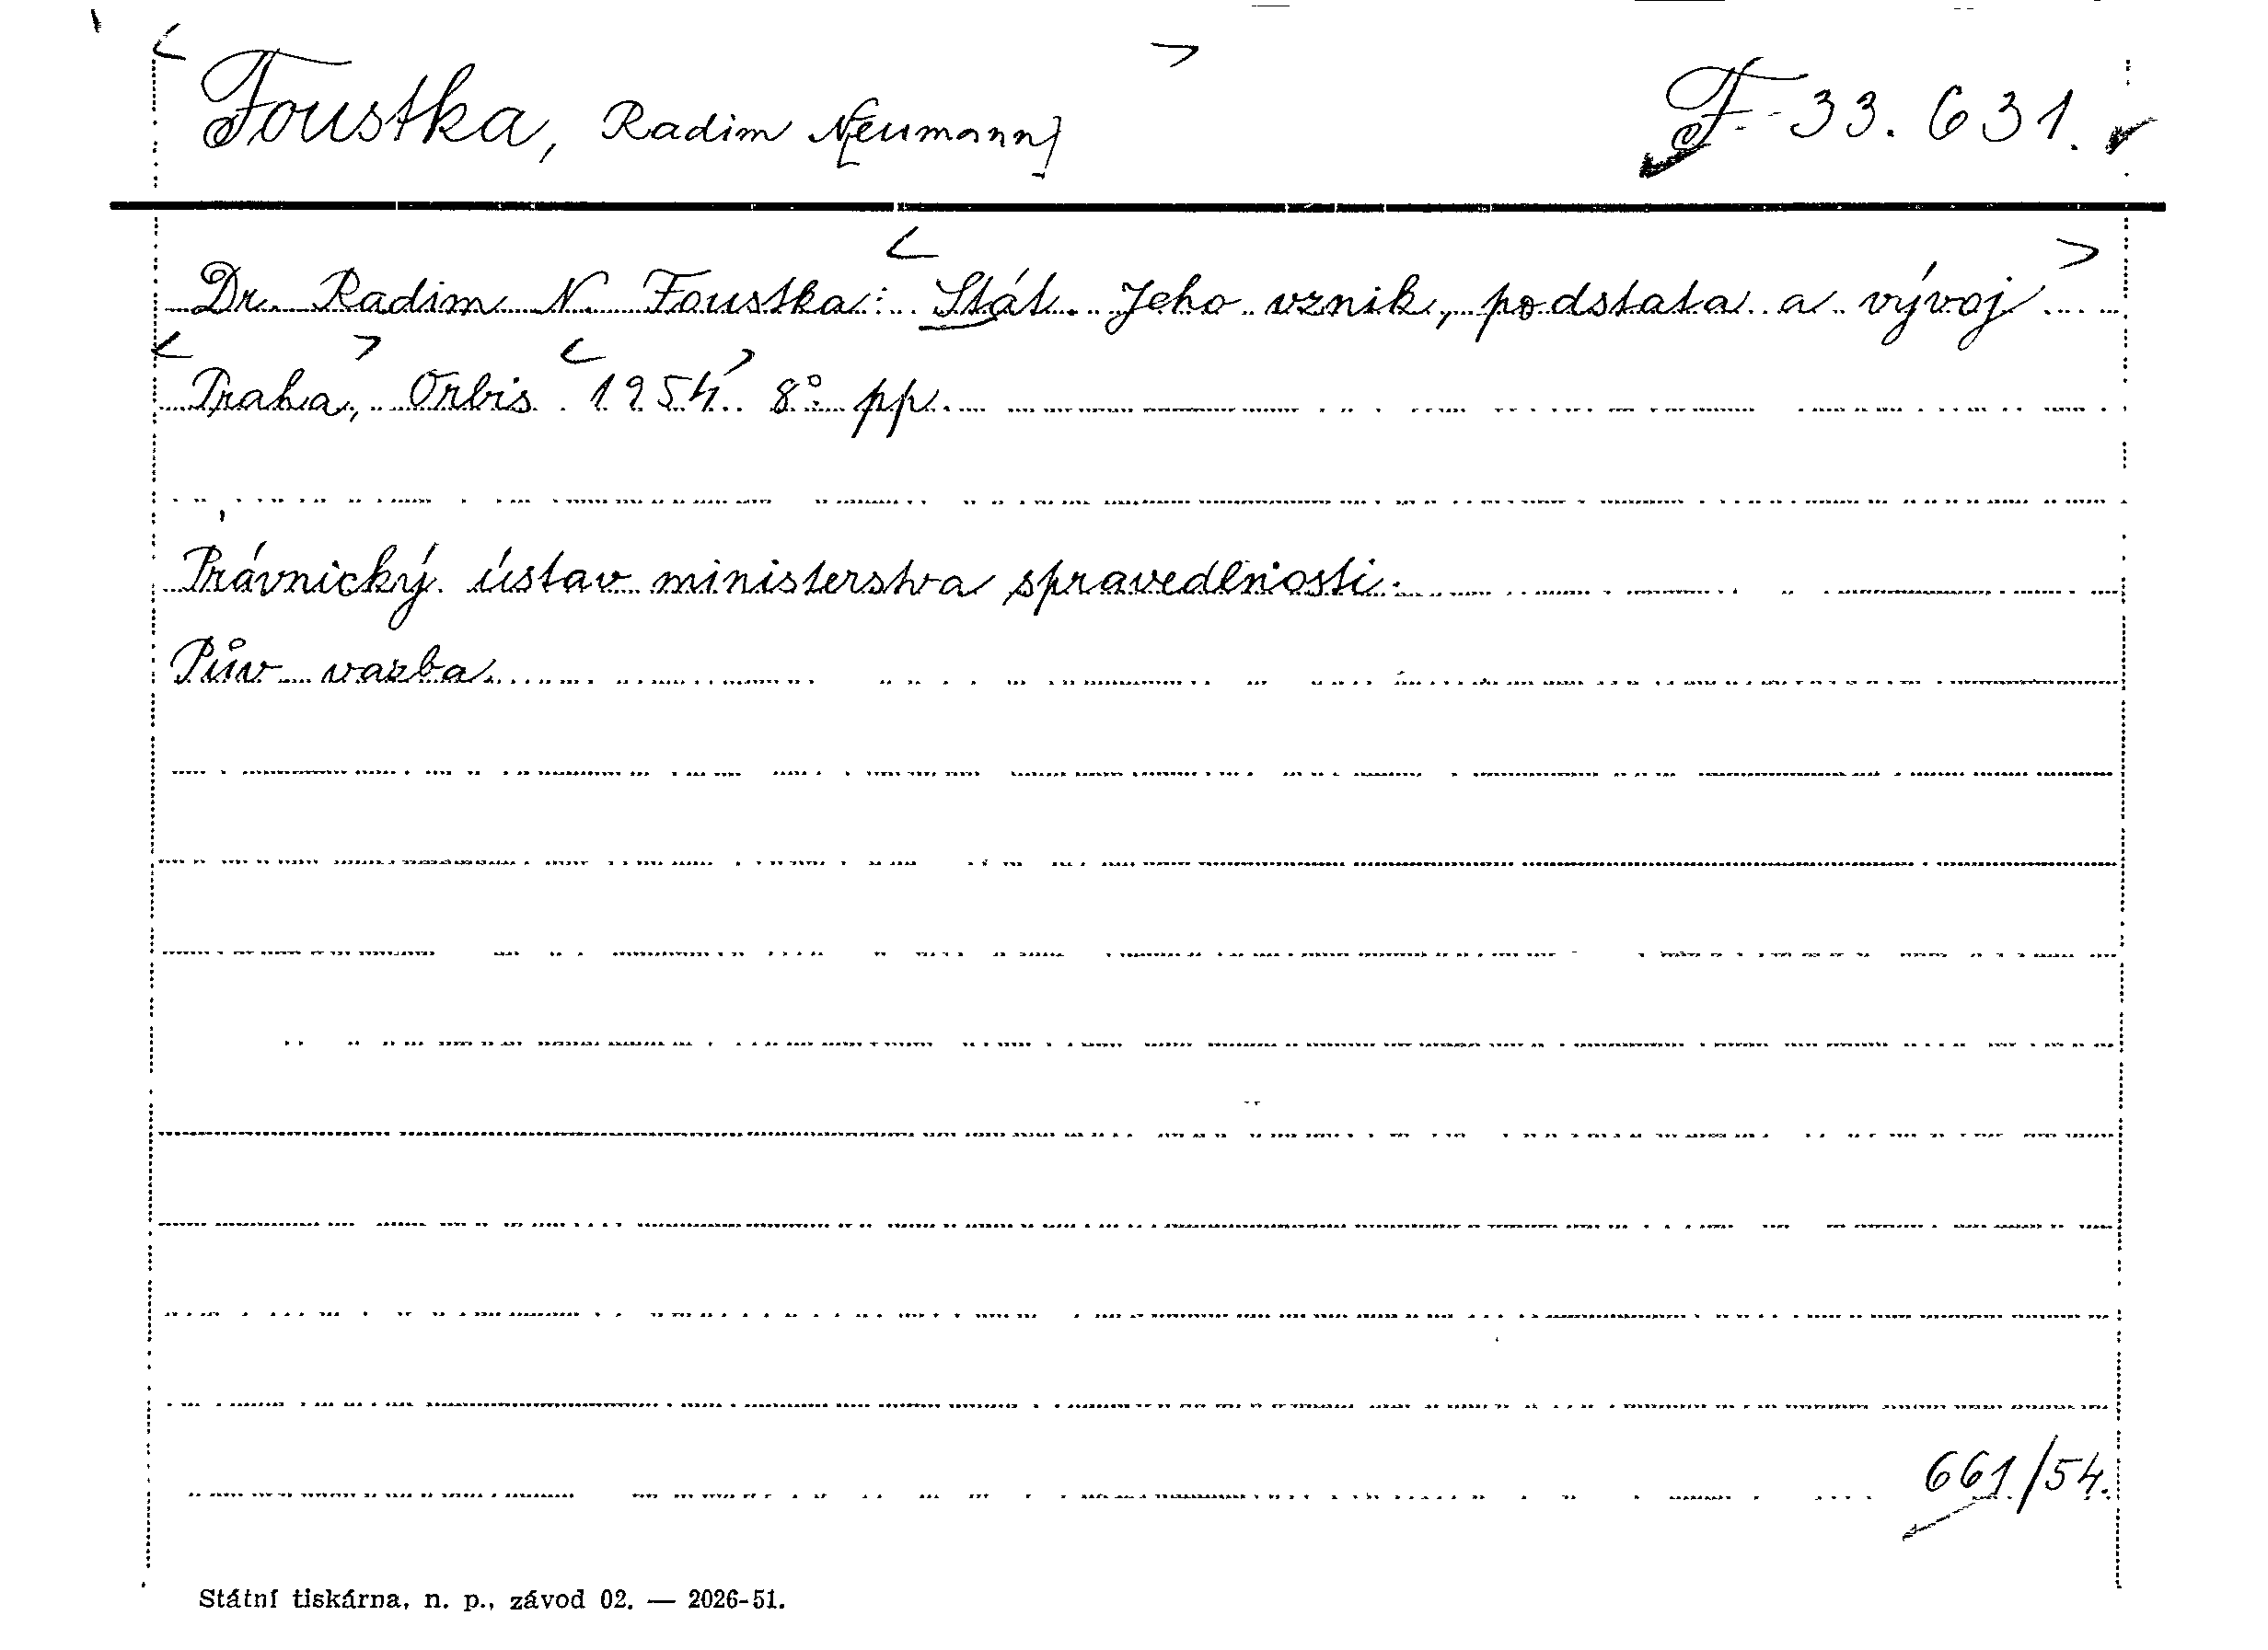 Foustka, Radim N[eumann] F-33.631.
Dr. Radim N. Foustka: Stát. Jeho vznik, podstata a vývoj
Praha, Orbis 1954. 8° pp.
Právnický ústav ministerstva spravedlnosti.
Pův. vazba.
661/54.
Státní tiskárna, n. p., závod 02. — 2026-51.